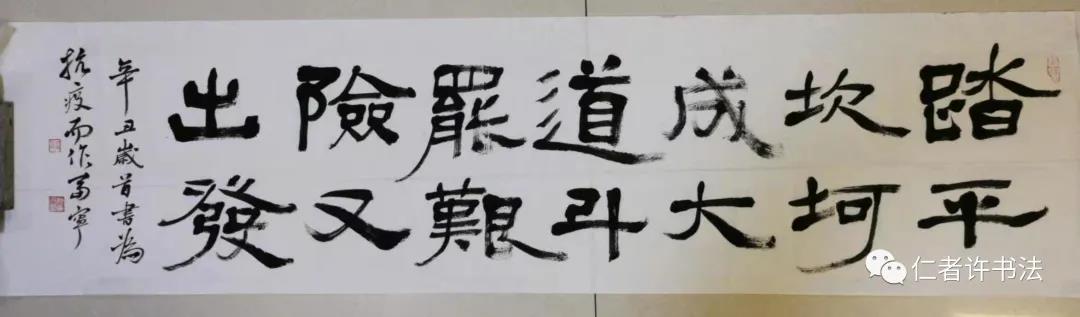 踏平
坎坷
成大
道斗
罷艱
險又
出發
辛丑歲首書為
抗疫而作
仁者许书法